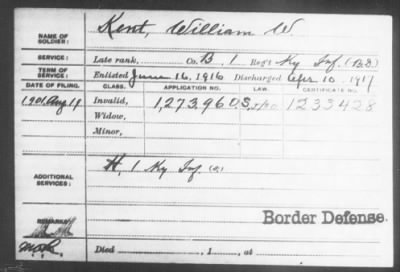 Kent, William W.
NAME OF SOLDIER:
SERVICE: Late rank, Co. B. 1 Reg't Ky Inf. (B.D.)
TERM OF SERVICE: Enlisted June 16, 1916 Discharged Apr. 10, 1917
DATE OF FILING. CLASS. APPLICATION NO. LAW. CERTIFICATE NO.
1901 Aug 19 Invalid, 1,273,960 1233428
Widow,
Minor,
ADDITIONAL SERVICES: H, 1 Ky Inf.
REMARKS: Border Defense.
Died , 1 , at